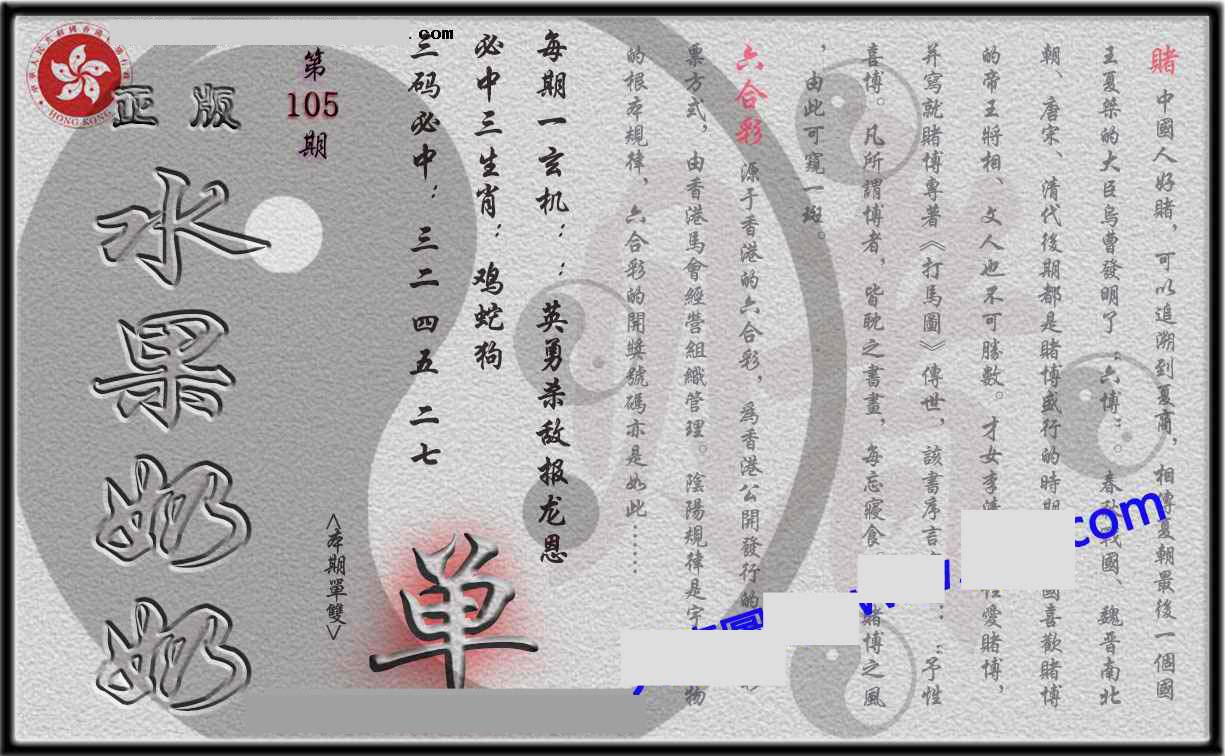 賭 中國人好賭，可以追溯到夏商，相傳夏朝最後一個國
王夏桀的大臣烏曹發明了“六博”。春秋戰國、魏晉南北
朝、唐宋、清代後期都是賭博盛行的時期
國喜歡賭博
的帝王將相、文人也不可勝數。才女李清
性愛賭博，
并寫就賭博專著《打馬圖》傳世，該書序言
：“予性
喜博。凡所謂博者，皆耽之晝書，每忘寢食
賭博之風
，由此可窺一斑。
六合彩 源于香港的六合彩，為香港公開發行的
票方式，由香港馬會經營組織管理。陰陽規律是宇
物
的根本規律、六合彩的開獎號碼亦是如此……
每期一玄机：：英勇杀敌报龙恩
必中三生肖：鸡蛇狗
三码必中：三二 四五 二七
.com
第
105
期
正版
水果奶奶
<本期單雙>
单
.com
HONG KONG